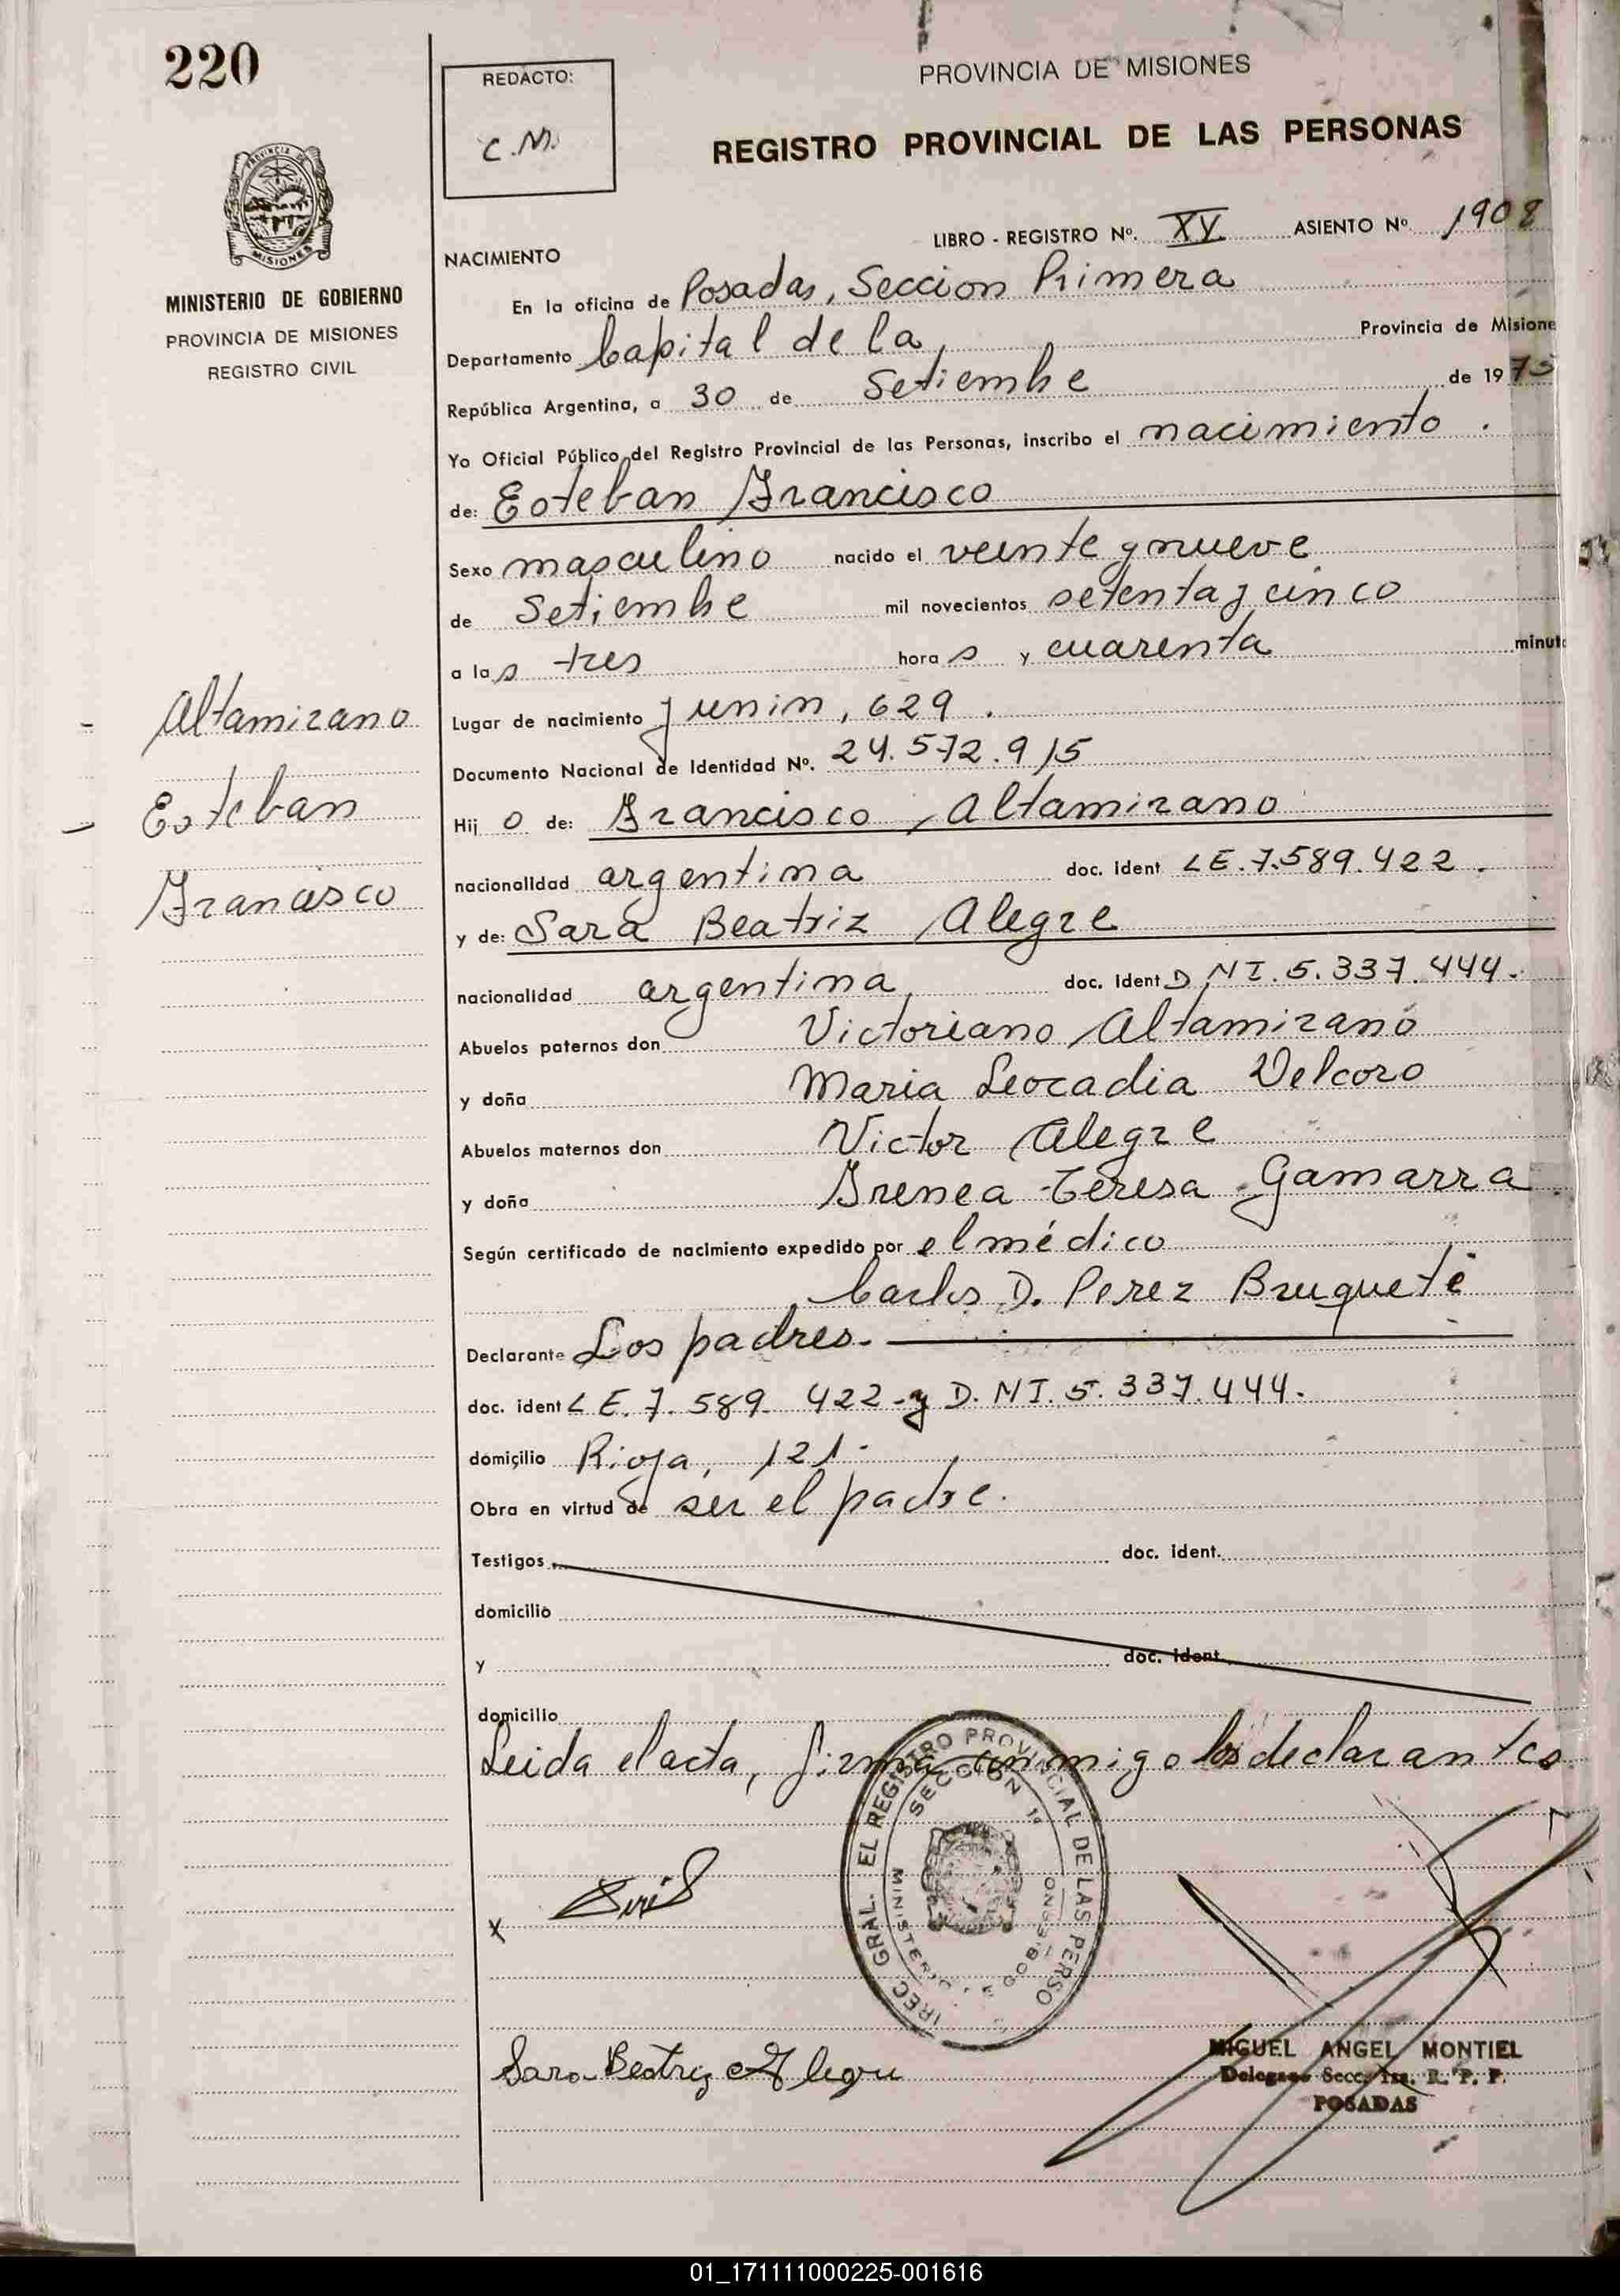 220
REDACTO:
C.M.
PROVINCIA DE MISIONES
REGISTRO PROVINCIAL DE LAS PERSONAS
PROVINCIA DE MISIONES
MINISTERIO DE GOBIERNO
PROVINCIA DE MISIONES
REGISTRO CIVIL
LIBRO - REGISTRO Nº. XV ASIENTO Nº 1908
NACIMIENTO
En la oficina de Posadas, Seccion Primera
Departamento Capital de la Provincia de Misione
República Argentina, a 30 de Setiembre de 1975
Yo Oficial Público del Registro Provincial de las Personas, inscribo el nacimiento.
de: Esteban Francisco
Sexo masculino nacido el veinte y nueve
de Setiembre mil novecientos setenta y cinco
a las tres horas y cuarenta minut
Altamirano
Esteban
Francisco
Lugar de nacimiento Junin, 629.
Documento Nacional de Identidad Nº. 24.572.915
Hijo de: Francisco Altamirano
nacionalidad argentina doc. ident LE.7.589.422.
y de: Sara Beatriz Alegre
nacionalidad argentina, doc. Ident D NI.5.337.444.
Abuelos paternos don Victoriano Altamirano
y doña Maria Leocadia Velcoro
Abuelos maternos don Victor Alegre
y doña Irenea Teresa Gamarra
Según certificado de nacimiento expedido por el médico
Carlos D. Perez Bruqueté
Declarante Los padres.
doc. ident LE.7.589.422 - y D.NI.5.337.444.
domicilio Rioja, 121.
Obra en virtud de ser el padre.
Testigos doc. ident.
domicilio
y doc. ident.
domicilio
Leida el acta, firma conmigo los declarantes
IREC GRAL. EL REGISTRO PROVINCIAL DE LAS PERSO
SECCION 1ª
MINISTERIO DE GOBIERNO
x
Sara Beatriz Alegre
MIGUEL ANGEL MONTIEL
Delegado Secc. 1ra. R. P. P.
POSADAS
01_171111000225-001616